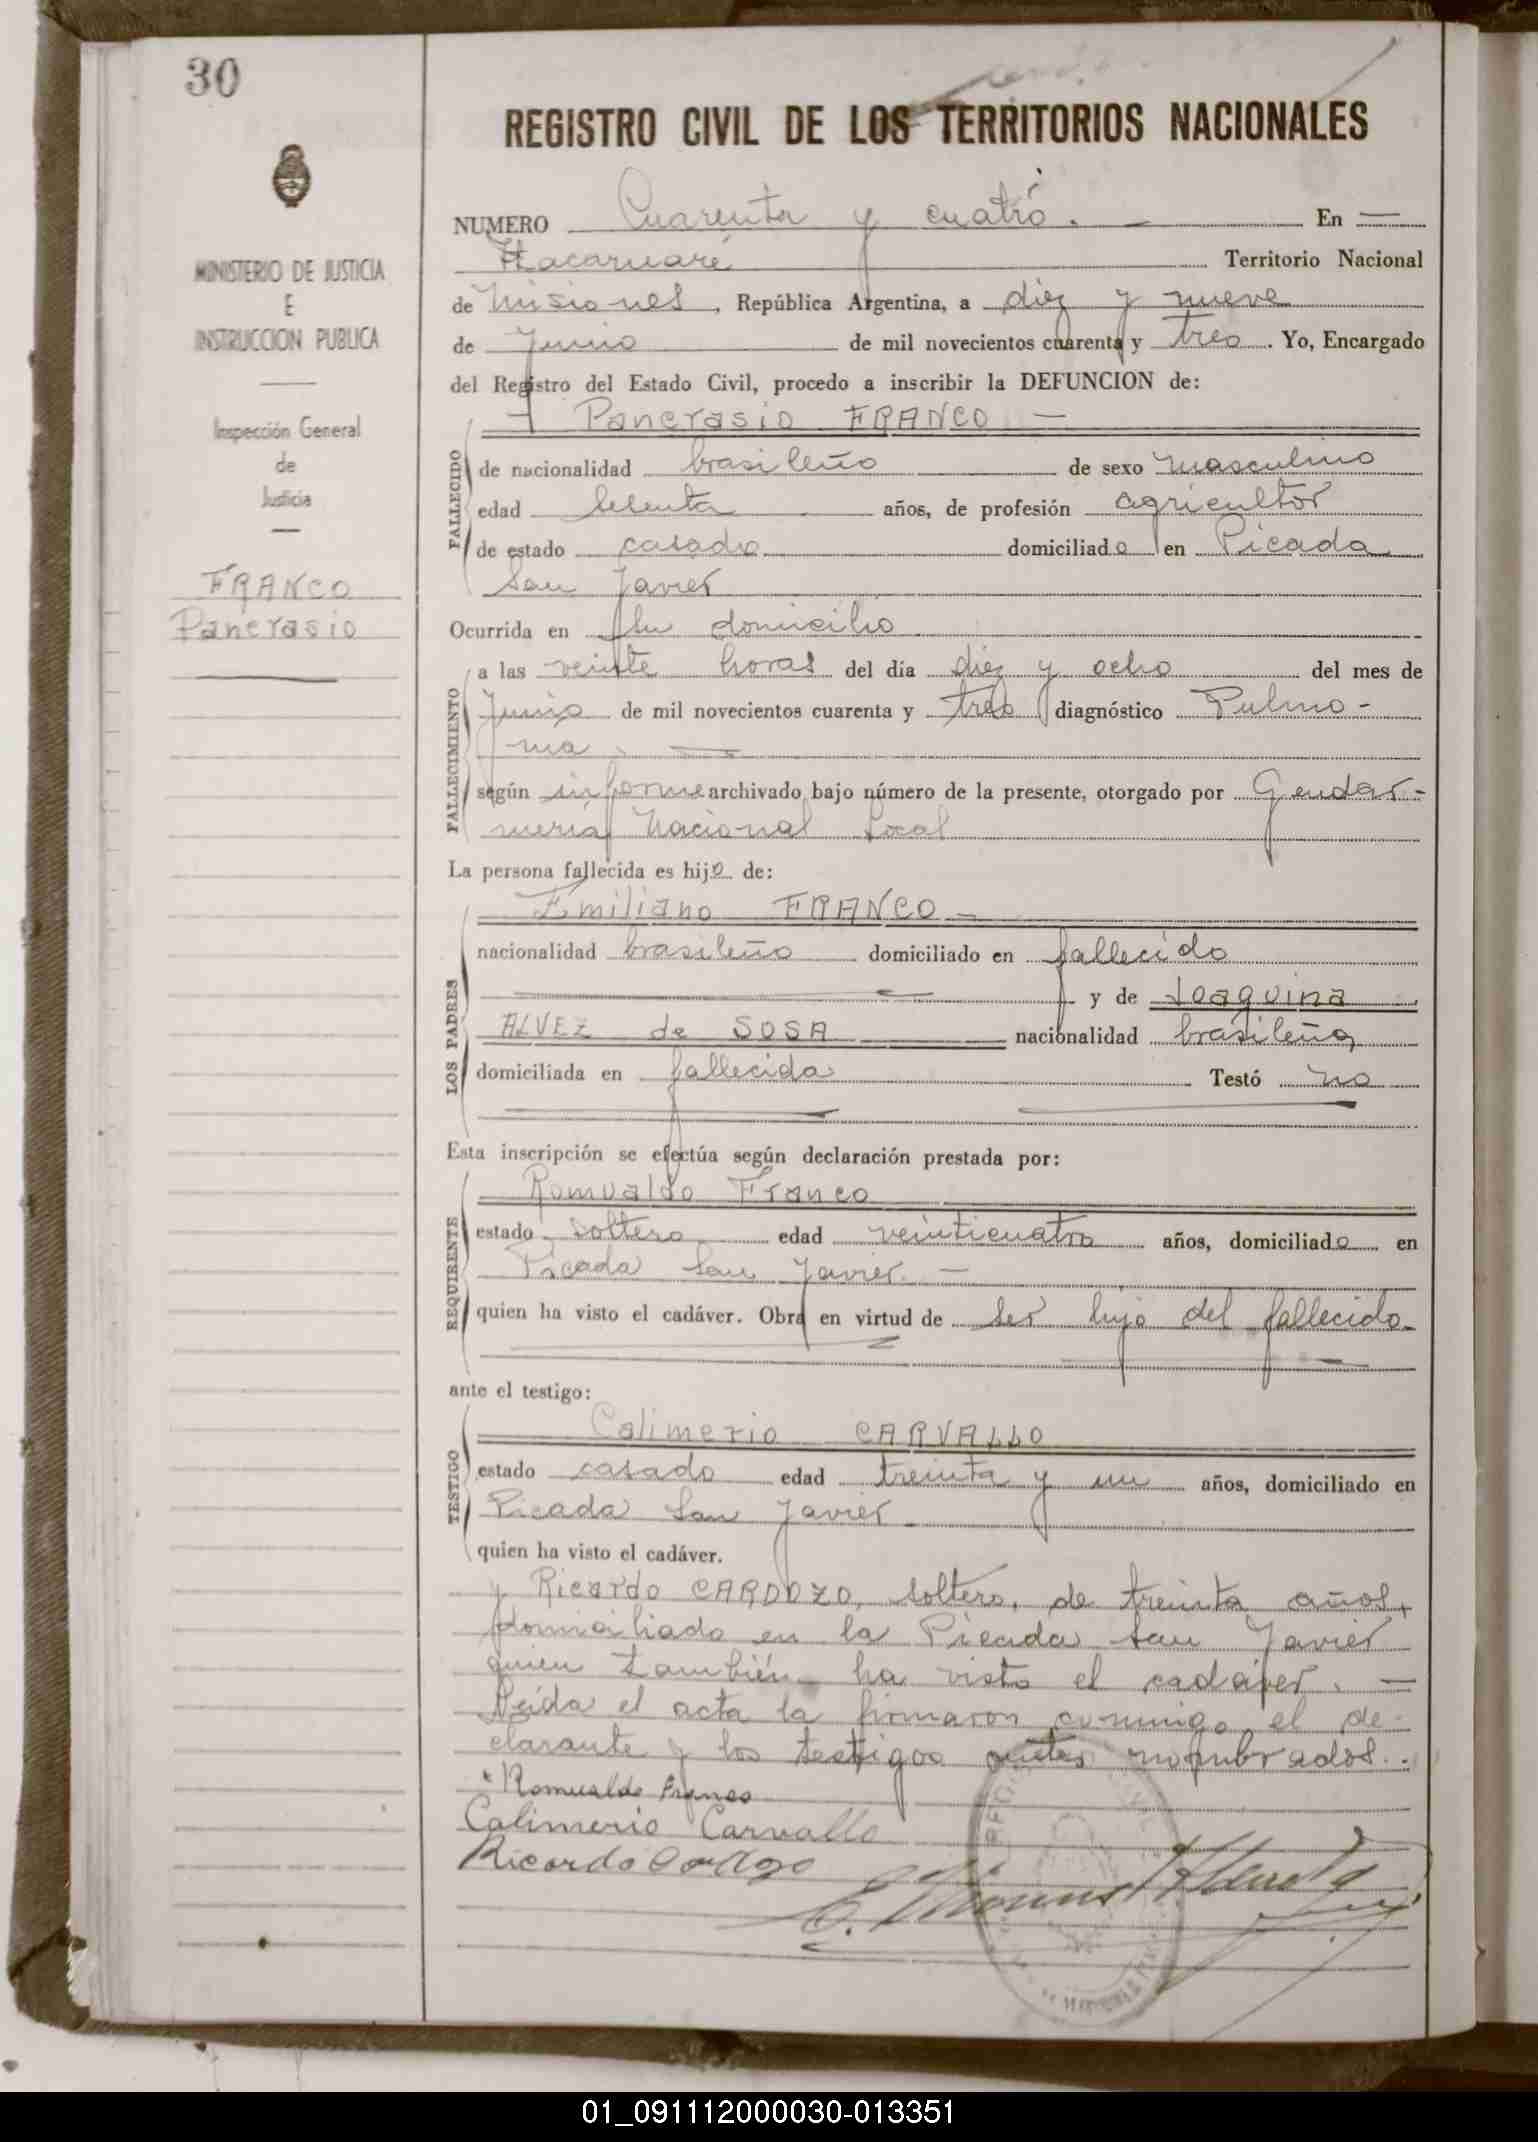 30
REGISTRO CIVIL DE LOS TERRITORIOS NACIONALES
MINISTERIO DE JUSTICIA
E
INSTRUCCION PUBLICA
Inspección General
de
Justicia
FRANCO
Pancrasio
NUMERO Cuarenta y cuatro. En
Itacaruaré Territorio Nacional
de Misiones, República Argentina, a diez y nueve
de Junio de mil novecientos cuarenta y tres. Yo, Encargado
del Registro del Estado Civil, procedo a inscribir la DEFUNCION de:
Pancrasio FRANCO
FALLECIDO
de nacionalidad brasileño de sexo masculino
edad sesenta años, de profesión agricultor
de estado casado domiciliado en Picada
San Javier
Ocurrida en su domicilio
FALLECIMIENTO
a las veinte horas del día diez y ocho del mes de
Junio de mil novecientos cuarenta y tres diagnóstico Pulmo-
nia
según informe archivado bajo número de la presente, otorgado por Gendar-
mería Nacional Local
La persona fallecida es hijo de:
LOS PADRES
Emiliano FRANCO
nacionalidad brasileño domiciliado en fallecido
y de Joaquina
ALVEZ de SOSA nacionalidad brasileña
domiciliada en fallecida Testó no
Esta inscripción se efectúa según declaración prestada por:
REQUIRENTE
Romualdo Franco
estado soltero edad veinticuatro años, domiciliado en
Picada San Javier.
quien ha visto el cadáver. Obra en virtud de ser hijo del fallecido
ante el testigo:
TESTIGO
Calimerio CARVALLO
estado casado edad treinta y un años, domiciliado en
Picada San Javier
quien ha visto el cadáver.
y Ricardo CARDOZO, soltero, de treinta años,
domiciliado en la Picada San Javier
quien también ha visto el cadáver.
Leída el acta la firmaron conmigo el de-
clarante y los testigos antes nombrados.
Romualdo Franco
Calimerio Carvallo
Ricardo
01_091112000030-013351